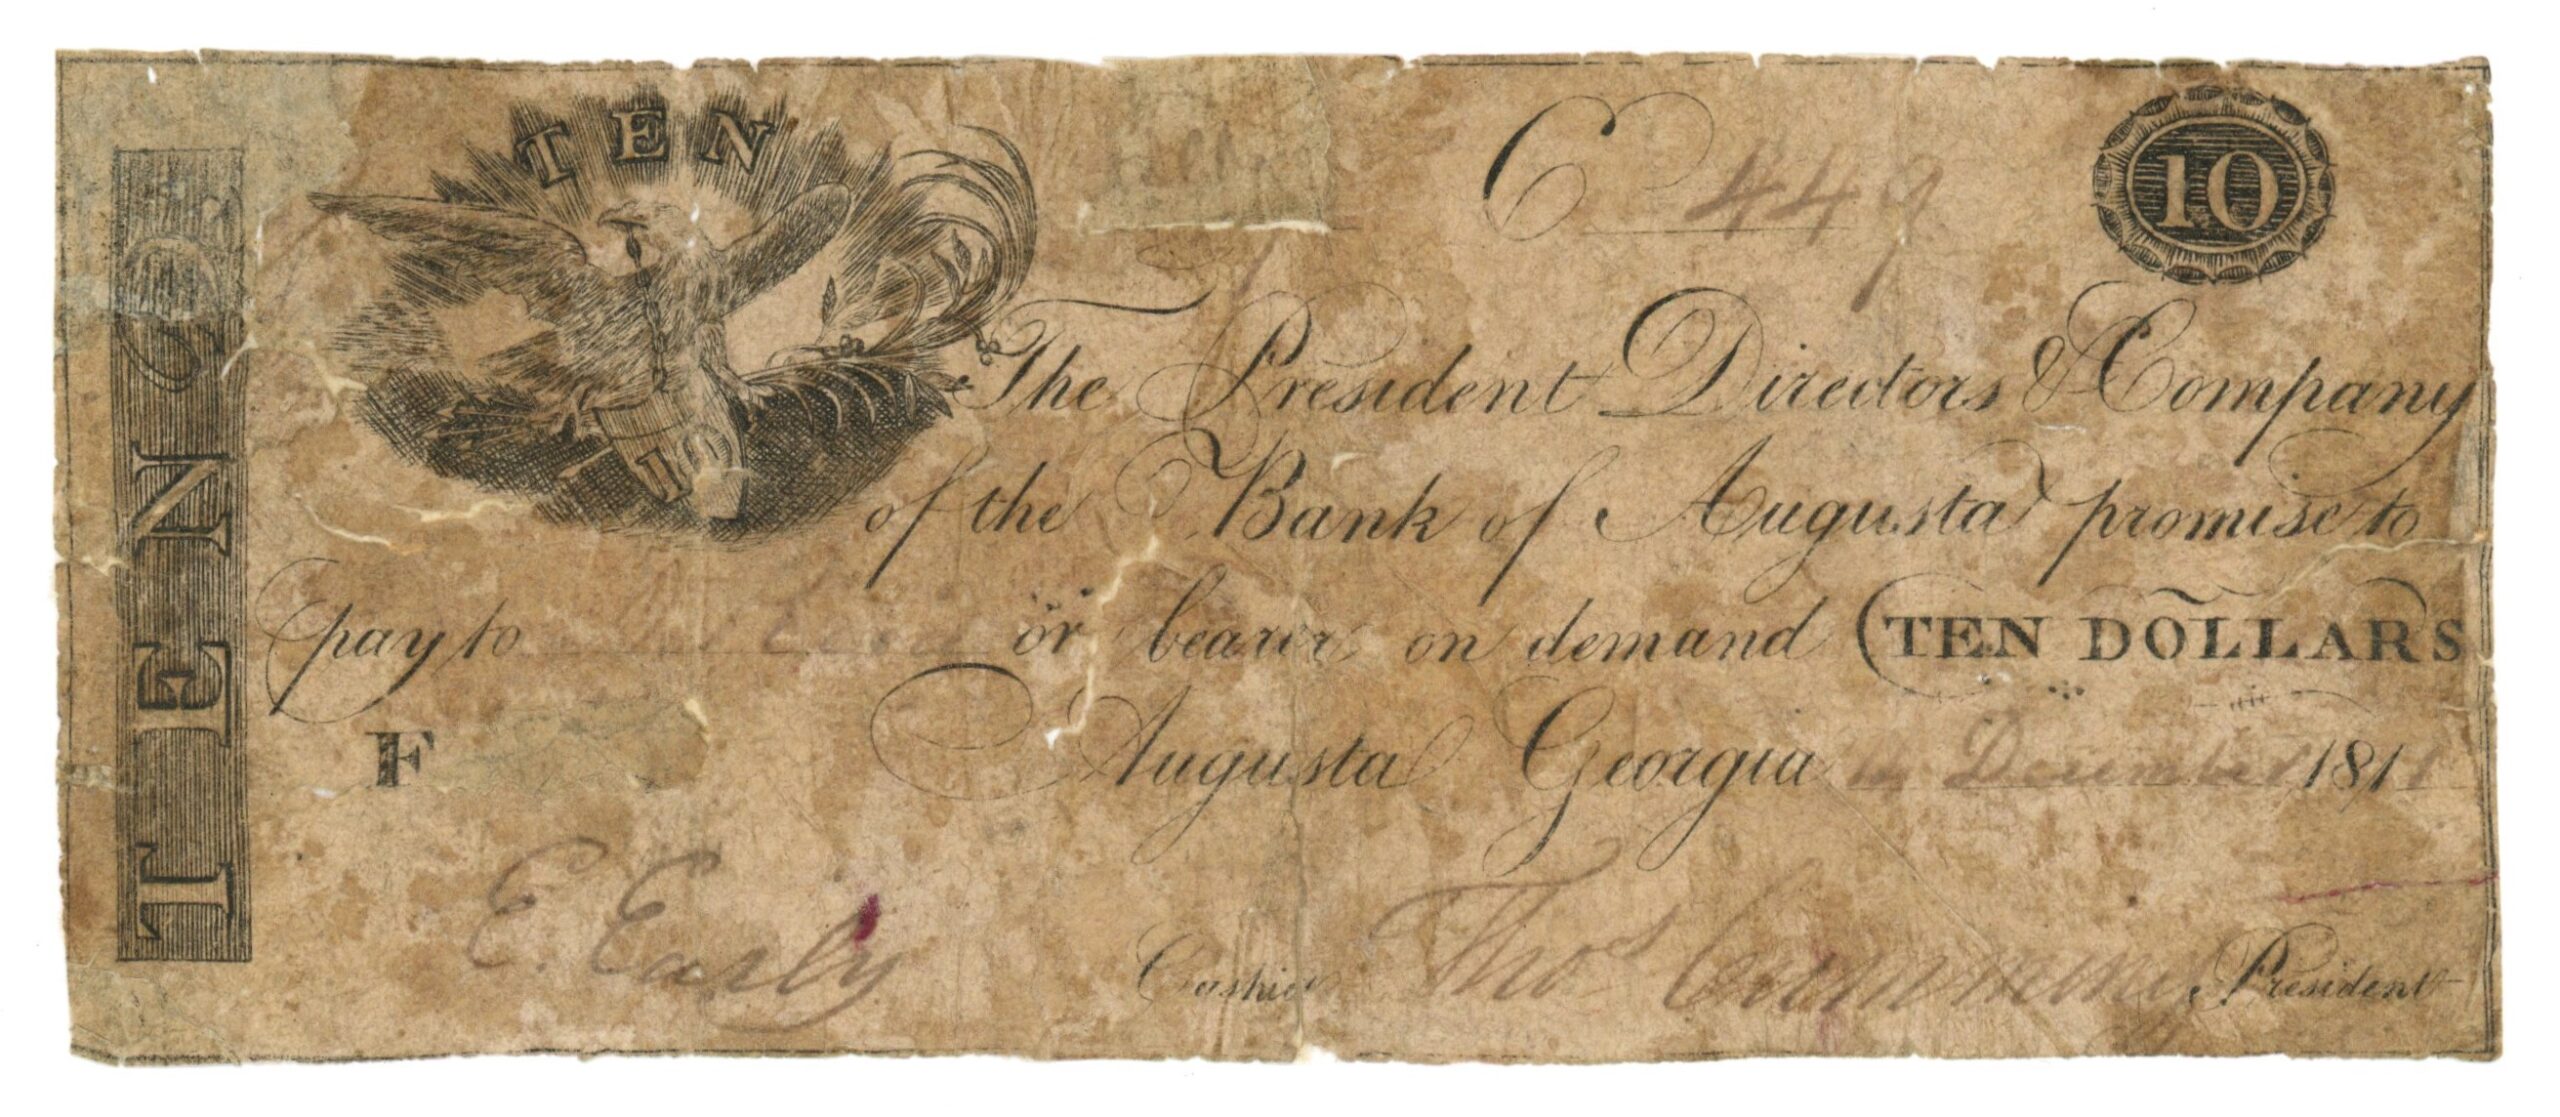 TEN
C 449
10
TEN
10
The President Directors & Company
of the Bank of Augusta promise to
pay to or bearer on demand TEN DOLLARS
F
Augusta Georgia December 1811
E. Early Cashier Thos Cumming President